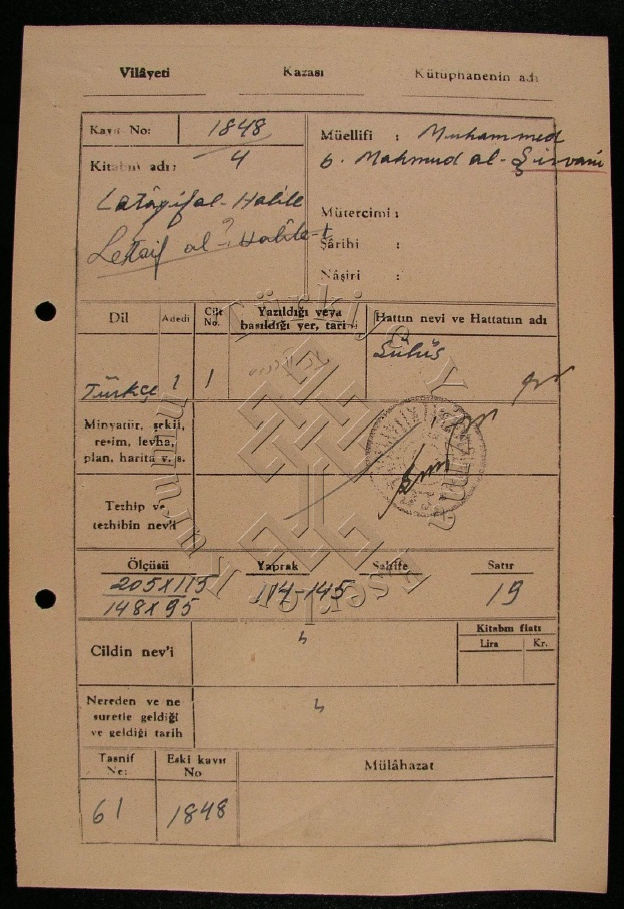 Vilâyeti
Kazası
Kütüphanenin adı
Kayıt No:
1848
4
Müellifi : Muhammed
b. Mahmud al-Şirvani
Kitabın adı:
Latâyif al-Halile
Letaif al-? Halile-t
Mütercimi :
Şârihi :
Nâşiri :
Dil
Adedi
Cilt No.
Yazıldığı veya
basıldığı yer, tarihi
Hattın nevi ve Hattatın adı
Türkçe
1
1
Sülüs
Minyatür, şekil,
resim, levha,
plan, harita v. s.
Tezhip ve
tezhibin nev'i
Ölçüsü
Yaprak
Sahife
Satır
205x115
148x95
114-145
19
Cildin nev'i
Kitabın fiatı
Lira
Kr.
Nereden ve ne
suretle geldiği
ve geldiği tarih
Tasnif
No:
Eski kayıt
No
Mülâhazat
61
1848
Türkiye Yazma Eserler Kurumu